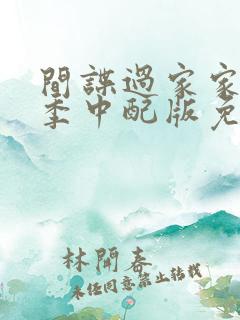 間諜過家家
季中配版免
林開春
未經同意禁止轉載